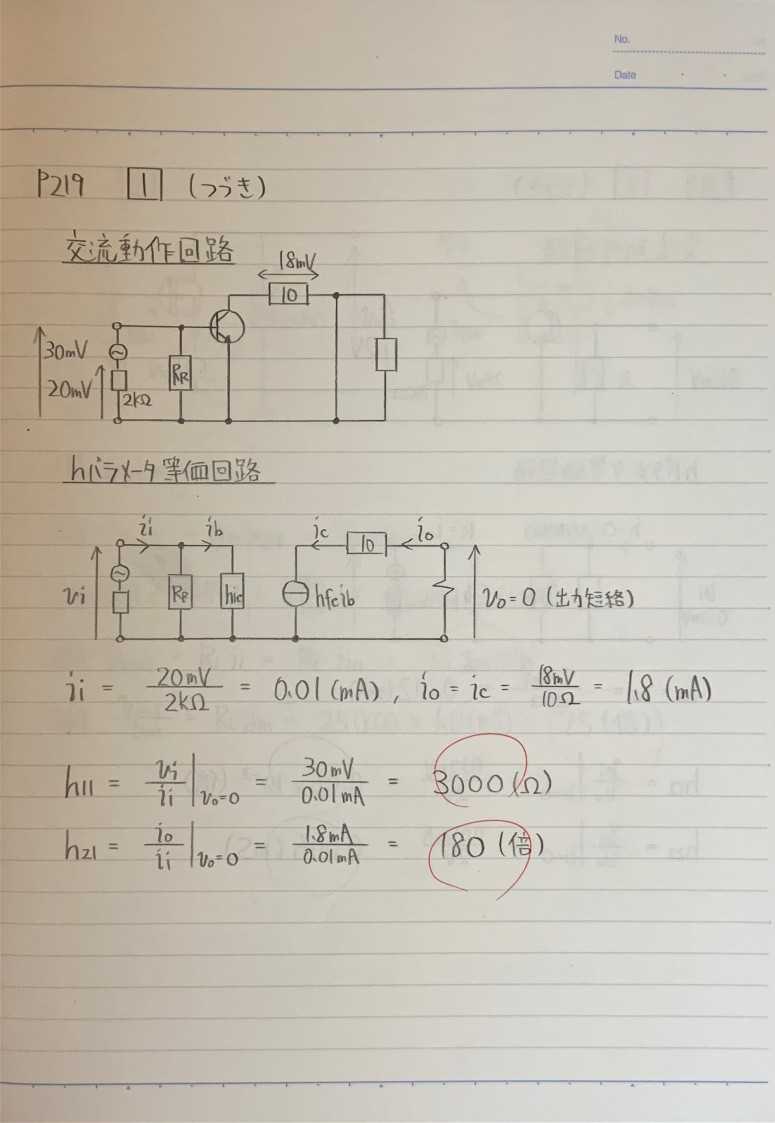 No.
Date
P219 1 (つづき)
交流動作回路
18mV
10
30mV
20mV
2kΩ
RR
hパラメータ等価回路
ii ib ic 10 io
vi
hfeib
v₀=0 (出力短絡)
ii = 20mV/2kΩ = 0.01 (mA), io = ic = 18mV/10Ω = 1.8 (mA)
h11 = vi/ii |v₀=0 = 30mV/0.01mA = 3000 (Ω)
h21 = io/ii |v₀=0 = 1.8mA/0.01mA = 180 (倍)